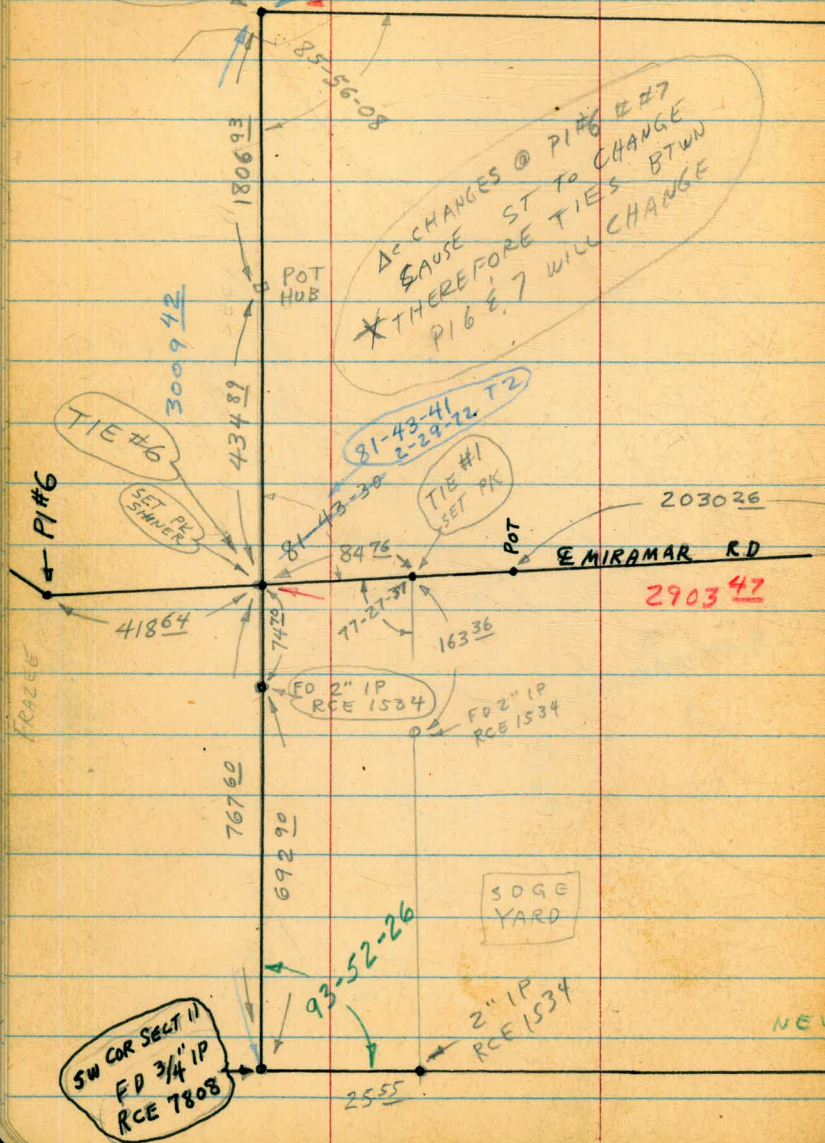 85-56-08
1806 93
POT
HUB
Δ's CHANGES @ PI #6 & #7
CAUSE ST TO CHANGE
THEREFORE TIES BTWN
PI 6 & 7 WILL CHANGE
3009 42
434 89
TIE #6
SET PK
SHINER
81-43-41 T2
2-29-72
81-43-30
TIE #1
SET PK
PI #6
84 76
POT
2030 26
℄ MIRAMAR RD
2903 47
418 64
74 70
77-27-37
163 36
FD 2" IP
RCE 1534
FD 2" IP
RCE 1534
FRAZEE
767 60
692 90
SDGE
YARD
93-52-26
2" IP
RCE 1534
SW COR SECT 11
FD 3/4" IP
RCE 7808
25 55
NEW